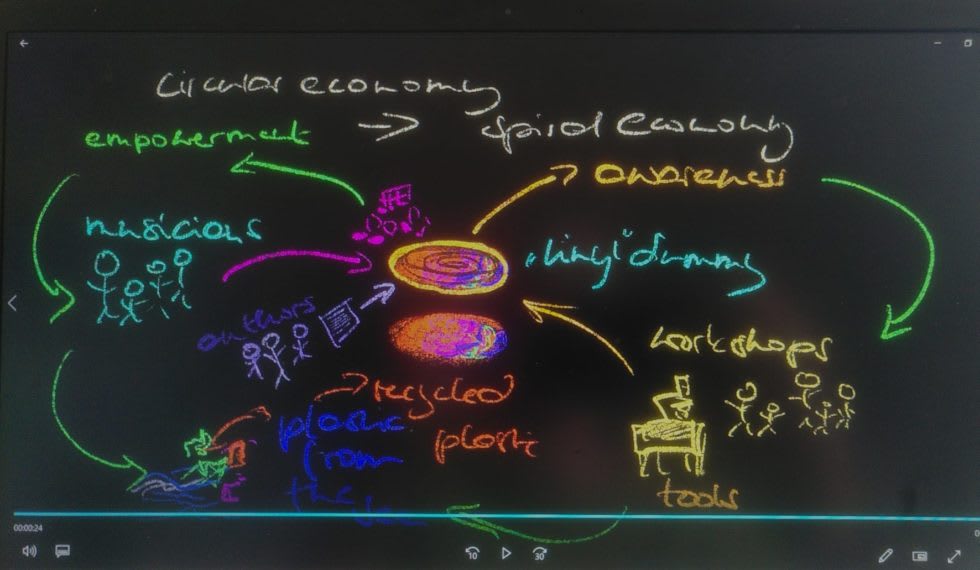 circular economy
→ spiral economy
empowerment
awareness
musicians
"vinyl" dummy
authors
workshops
recycled
plastic
plastic
from
the
sea
tools
00:00:24
10
30